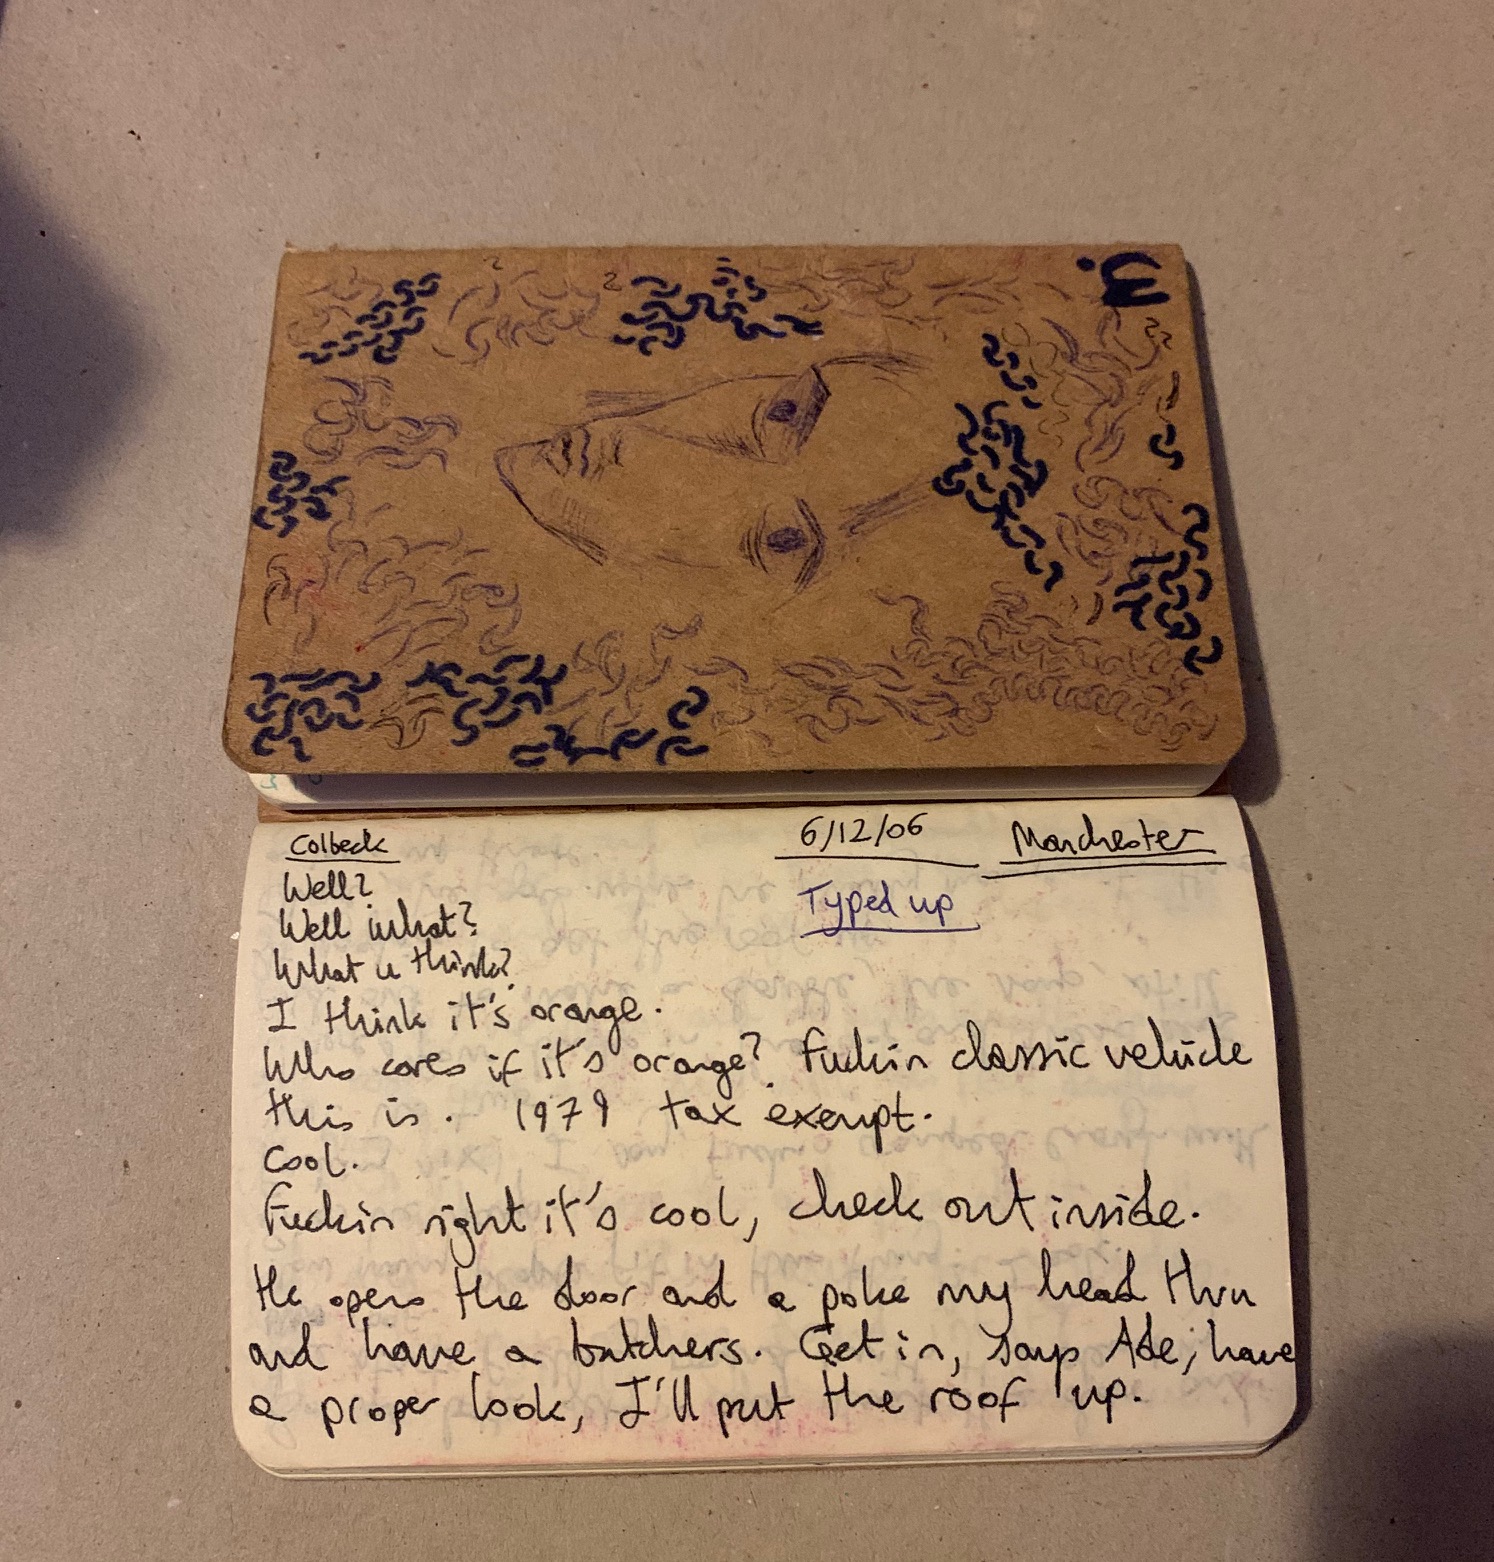 Colbeck
6/12/06
Manchester
Typed up
Well?
Well what?
What u think?
I think it's orange.
Who cares if it's orange? Fuckin classic vehicle
this is. 1979 tax exempt.
Cool.
Fuckin right it's cool, check out inside.
He opens the door and a poke my head thru
and have a butchers. Get in, says Ade, have
a proper look, I'll put the roof up.